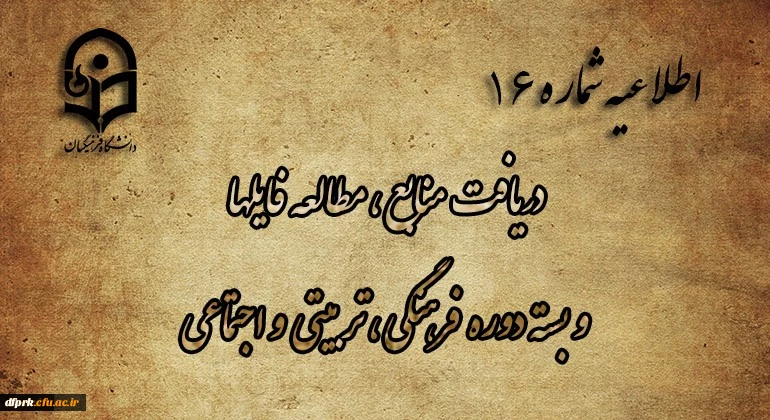 اطلاعیه شماره ۱۶
دانشگاه فرهنگیان
دریافت منابع، مطالعه فایلها
و بسته دوره فرهنگی، تربیتی و اجتماعی
dfprk.cfu.ac.ir